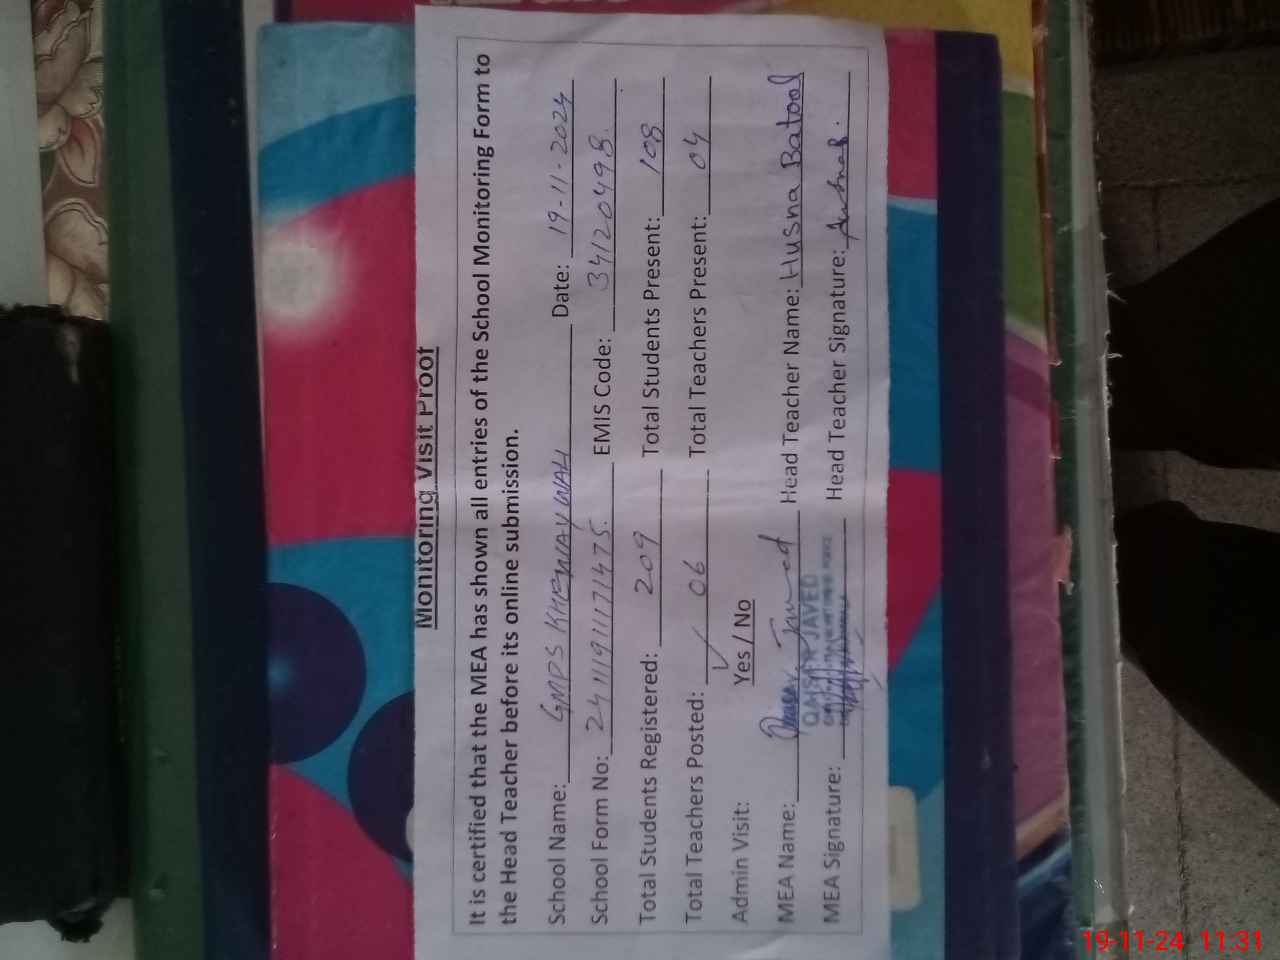 Monitoring Visit Proof
It is certified that the MEA has shown all entries of the School Monitoring Form to
the Head Teacher before its online submission.
School Name: GMPS KHEWAYWAH Date: 19-11-2024
School Form No: 241119111711475 EMIS Code: 34120498
Total Students Registered: 209 Total Students Present: 108
Total Teachers Posted: 06 Total Teachers Present: 04
Admin Visit: ✓ Yes / No
MEA Name: Qaisar Javed Head Teacher Name: Husna Batool
QAISAR JAVED
MEA Signature: Head Teacher Signature:
19-11-24 11:31